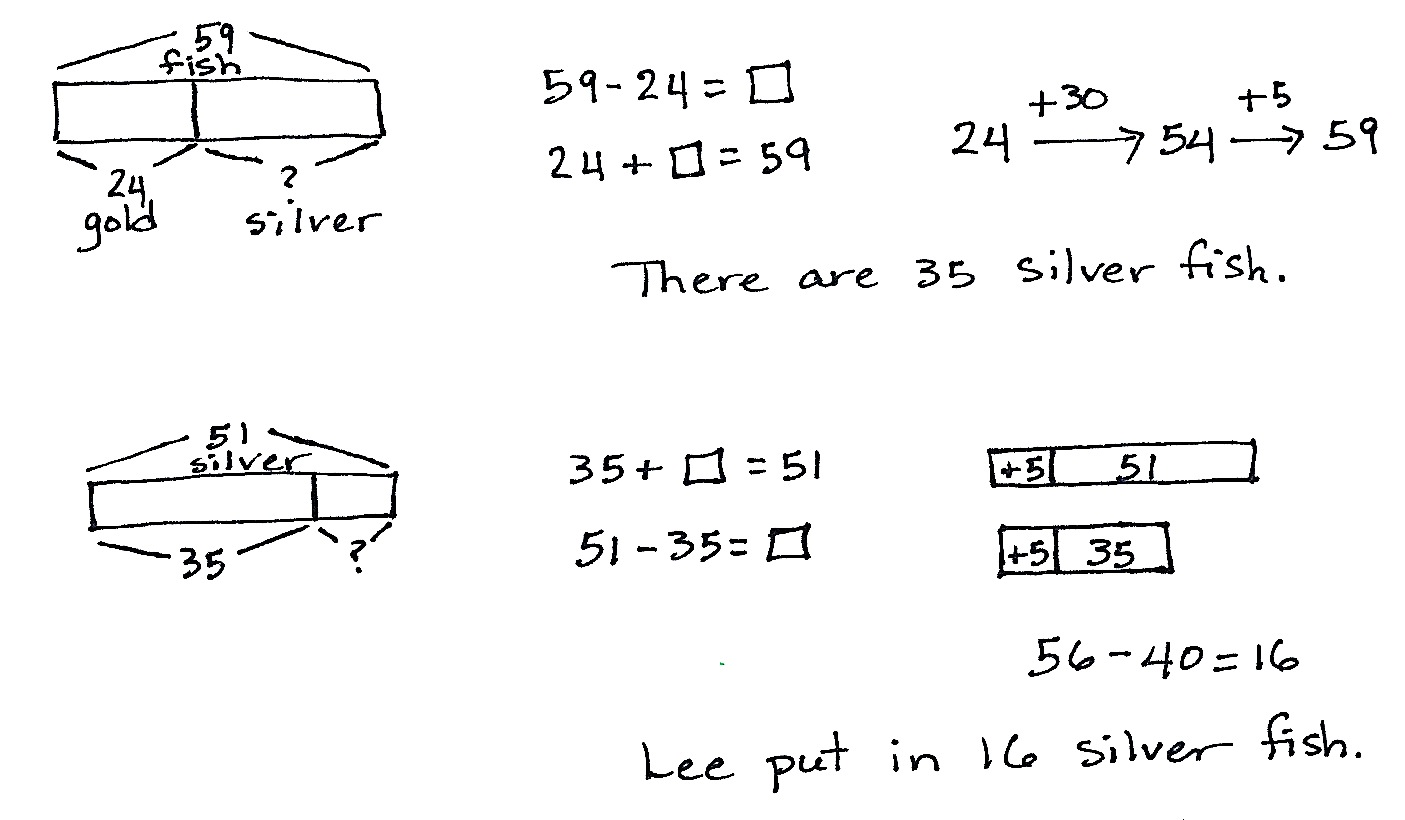 59
fish
24
gold
?
silver
59 - 24 = □
24 + □ = 59
24 +30 → 54 +5 → 59
There are 35 silver fish.
51
silver
35
?
35 + □ = 51
51 - 35 = □
+5 51
+5 35
56 - 40 = 16
Lee put in 16 silver fish.